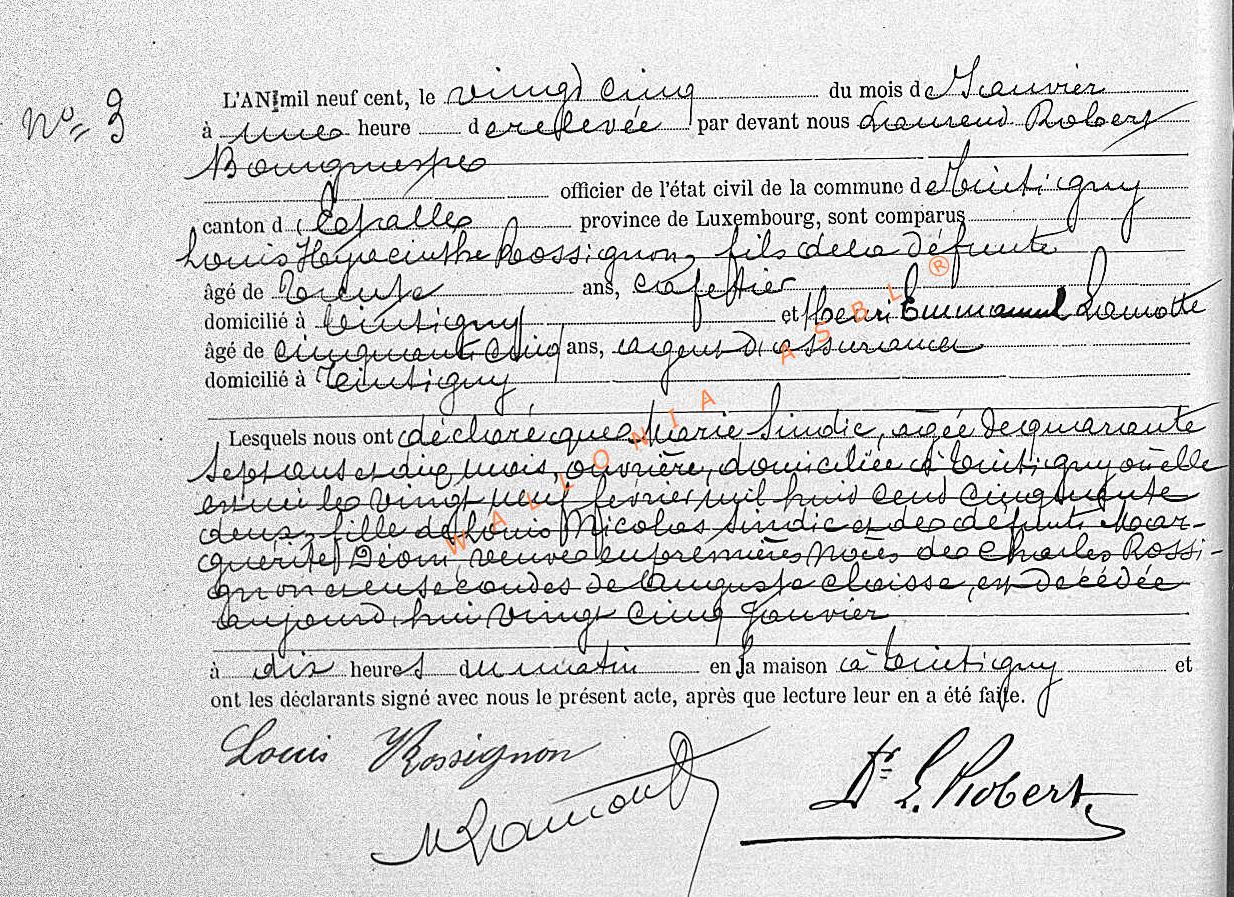 N° 3
L'AN mil neuf cent, le vingt cinq du mois de Janvier
à une heure de relevée par devant nous Laurend Robert
Bourgmestre
officier de l'état civil de la commune de Tintigny
canton d'Etalle province de Luxembourg, sont comparus
Louis Hyacinthe Rossignon, fils de la défunte
âgé de trente ans, cafettier
domicilié à Tintigny et Henri Emmanuel Lamotte
âgé de cinquante cinq ans, agent d'assurances
domicilié à Tintigny
Lesquels nous ont déclaré que Marie Sindic, agée de quarante
sept ans et dix mois, ouvrière, domiciliée à Tintigny où elle
est née le vingt neuf février mil huit cent cinquante
deux, fille de Louis Nicolas Sindic et de défunte Mar-
guerite Dion veuve en premières noces de Charles Rossi-
gnon et en secondes de Auguste, est décédée
aujourd'hui vingt cinq Janvier
à dix heures du matin en sa maison à Tintigny et
ont les déclarants signé avec nous le présent acte, après que lecture leur en a été faite.
Louis Rossignon
Dr L. Robert
WALLONIA ASBL ®